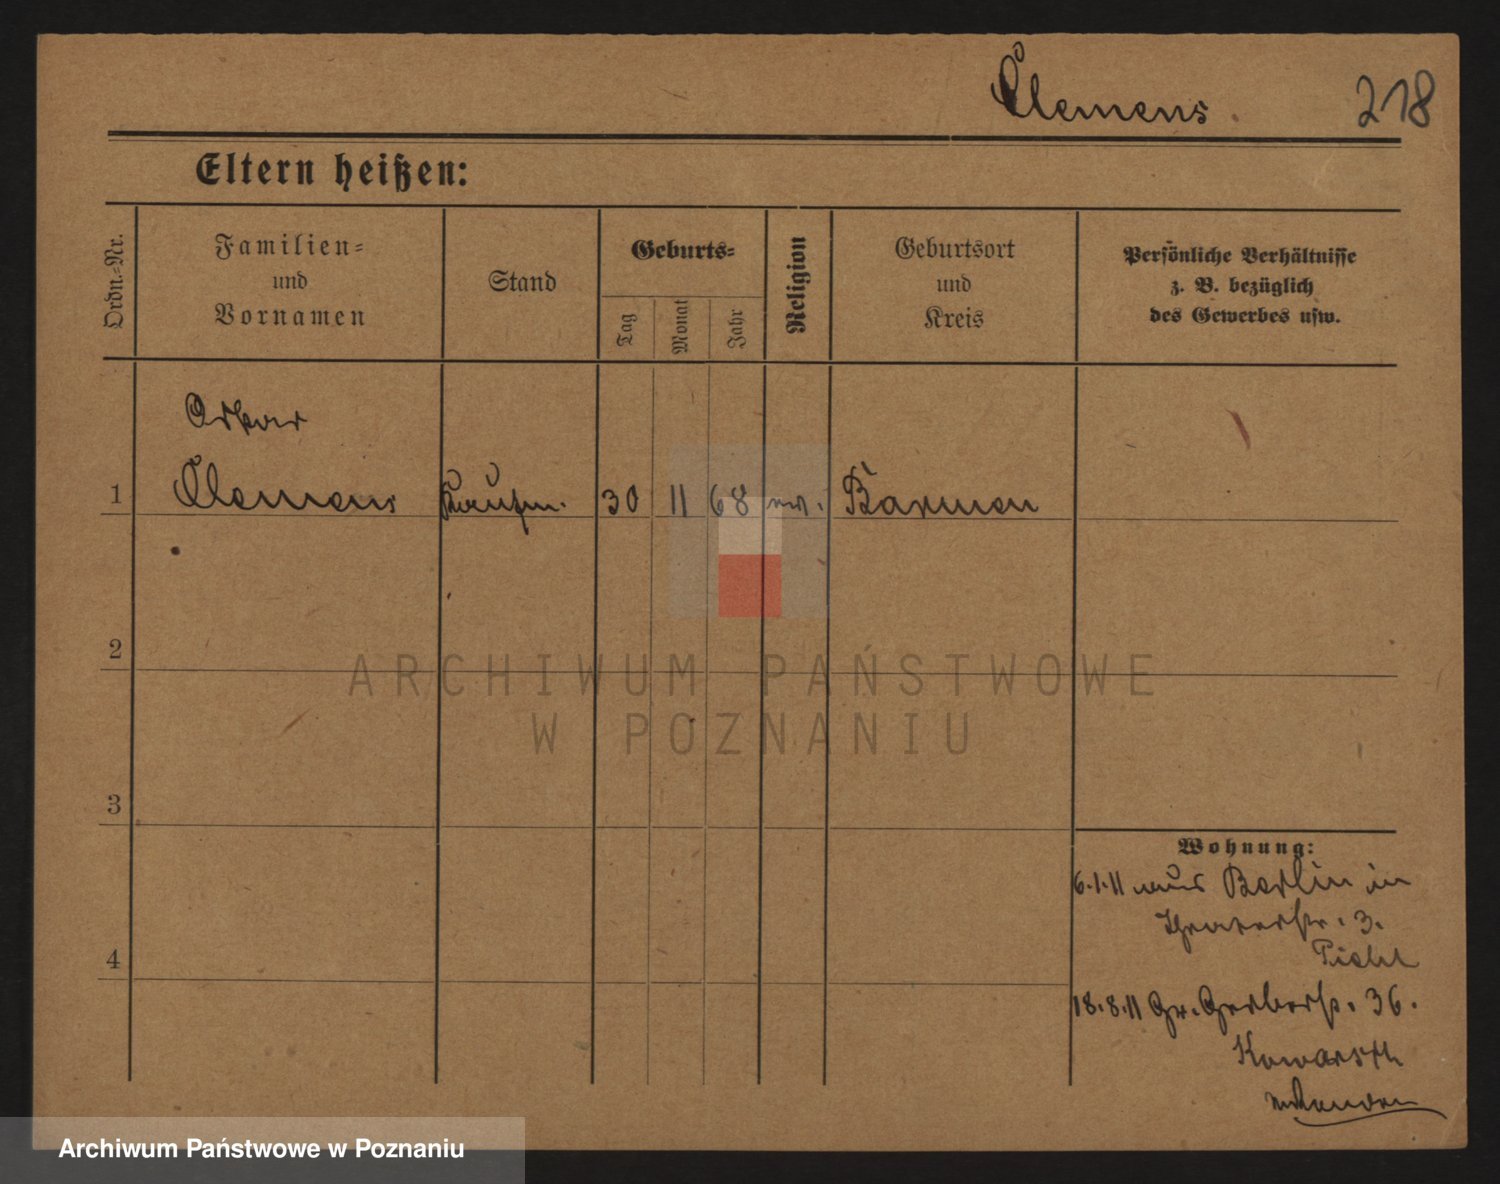 Clemens. 218
Eltern heißen:
Ordn.-Nr.
Familien-
und
Vornamen
Stand
Geburts-
Tag
Monat
Jahr
Religion
Geburtsort
und
Kreis
Persönliche Verhältnisse
z. B. bezüglich
des Gewerbes usw.
Oskar
1 Clemens Kaufm. 30 11 68 ev. Barmen
2
3
4
Wohnung:
6.1.11 aus Berlin in
Theaterstr. 3.
18.8.11 Gr. Gerberstr. 36.
ARCHIWUM PAŃSTWOWE
W POZNANIU
Archiwum Państwowe w Poznaniu